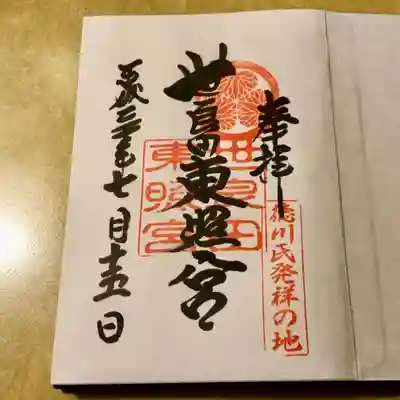 奉拝
徳川氏発祥の地
世良田東照宮
世良田
東照宮
平成三十年七月十五日